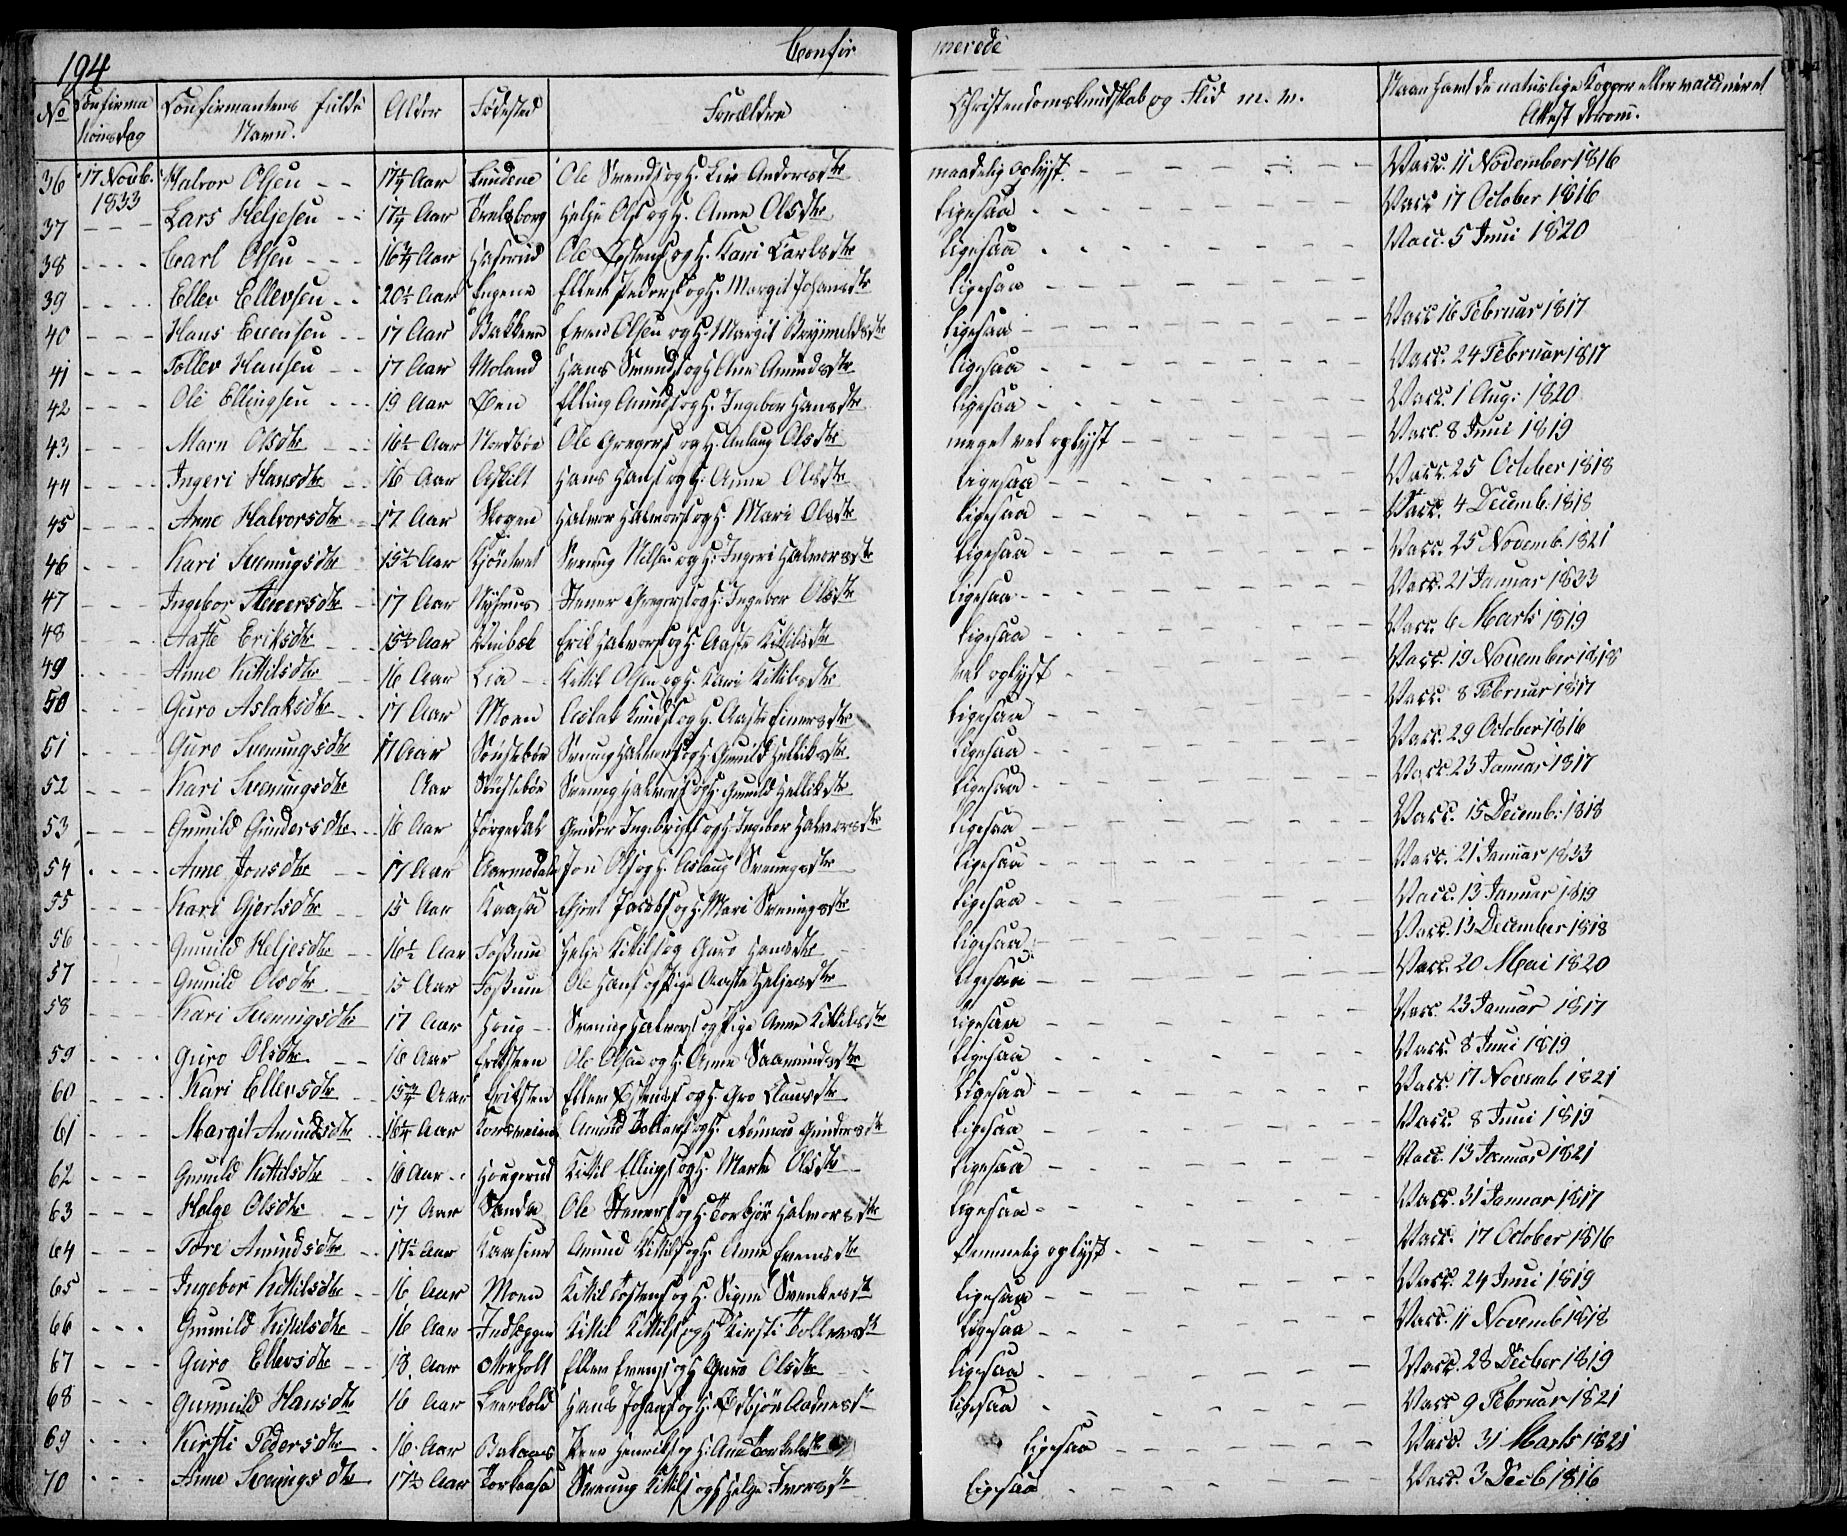 194 Confirmerede
No Confirmationsdag Confirmantens fulde Navn. Alder Fødested Forældre Christendomskundskab og Flid m. m. Naar havt de naturlige Kopper eller vaccineret Attest derom.
36 17 Novb. 1833 Halvor Olsen 17 Aar Ole Svends og H. Liv Andersdtr maadelig oplyst Vacc. 11 November 1816
37 Lars Heljesen 17 Aar Helje Ols og H. Anne Olsdtr ligesaa Vacc 17 October 1816
38 Carl Olsen 16 Aar Ole Østens og H. Kari Carlsdtr ligesaa Vacc. 5 Juni 1820
39 Ellev Ellevsen 20½ Aar Ellev Peders og H. Margit Johansdtr ligesaa
40 Hans Evensen 17 Aar Bakkene Even Olsen og H. Margit ligesaa Vacc 16 Februar 1817
41 Tollev Hansen 17 Aar Moland Hans og H. Ane Amundsdtr ligesaa Vacc. 24 Februar 1817
42 Ole Ellingsen 19 Aar Øen Elling Amunds og H. Ingebor Hansdtr ligesaa Vacc. 1 Aug. 1820
43 Maren Olsdtr 16½ Aar Nordbøe Ole Gregers og H. Anlaug Olsdtr meget vel oplyst Vacc. 8 Juni 1819
44 Ingeri Hansdtr 16 Aar Askilt Hans Hans og H. Anne Olsdtr ligesaa Vacc. 25 October 1818
45 Anne Halvorsdtr 17 Aar Skogen Halvor Halvors og H. Mari Olsdtr ligesaa Vacc. 4 Decemb. 1818
46 Kari Svenungsdtr 15½ Aar Svenung Nilsen og H. Ingeri Halvorsdtr ligesaa Vacc. 25 Novemb. 1821
47 Ingebor Stenersdtr 17 Aar Stener Gregers og H. Ingebor Olsdtr ligesaa Vacc. 21 Januar 1833
48 Aaste Eriksdtr 15½ Aar Erik Halvors og H. Aaste Kittilsdtr ligesaa Vacc. 6 Marts 1819
49 Anne Kittilsdtr 16 Aar Lia Kittil Olsen og H. Kari Kittilsdtr vel oplyst Vacc. 19 November 1818
50 Guro Aslaksdtr 17 Aar Moen Aslak Knuds og H. Aaste Einersdtr ligesaa Vacc. 8 Februar 1817
51 Guro Svenungsdtr 17 Aar Svenung Halvors og H. Gunild Helliksdtr ligesaa Vacc. 29 October 1816
52 Kari Svenungsdtr Aar Svenung Halvors og H. Gunild Helliksdtr ligesaa Vacc. 23 Januar 1817
53 Gunild Gundersdtr 16 Aar Jørgedal Gunder Ingebrigts og H. Ingebor Halvorsdtr ligesaa Vacc. 15 Decemb. 1818
54 Anne Jonsdtr 17 Aar Jon Ols og H. Aslaug Svenungsdtr ligesaa Vacc. 21 Januar 1833
55 Kari Gjertsdtr 15 Aar Kaasa Gjert Jacobs og H. Mari Svenungsdtr ligesaa Vacc. 13 Januar 1819
56 Gunild Heljesdtr 16½ Aar Fossum Helje Kittils og Guro Hansdtr ligesaa Vacc. 13 December 1818
57 Gunild Olsdtr 15 Aar Fossum Ole Hans og Pige Aaste Heljesdtr ligesaa Vacc. 20 Mai 1820
58 Kari Svenungsdtr 17 Aar Houg Svenung Halvors og Pige Anne Kittilsdtr ligesaa Vacc. 23 Januar 1817
59 Guro Olsdtr 16 Aar Eriksteen Ole Olsen og H. Anne Saamundsdtr ligesaa Vacc. 8 Juni 1819
60 Kari Ellevsdtr 15¾ Aar Eriksten Ellev Østens og H. Gro Clausdtr ligesaa Vacc. 17 Novemb 1821
61 Margit Amundsdtr 16¼ Aar Amund Tollevs og H. Gundersdtr ligesaa Vacc. 8 Juni 1819
62 Gunild Kittilsdtr 16 Aar Hougerud Kittil Ellings og H. Marte Olsdtr ligesaa Vacc. 13 Januar 1821
63 Helge Olsdtr 17 Aar Sanden Ole Steners og H. Torbjør Halvorsdtr ligesaa Vacc. 31 Januar 1817
64 Tore Amundsdtr 17½ Aar Amund Kittils og H. Anne Evensdtr temmelig oplyst Vacc. 17 October 1816
65 Ingebor Kittilsdtr 16 Aar Moen Kittil Tostens og H. Signe Svenkesdtr ligesaa Vacc. 24 Juni 1819
66 Gunnild Kittilsdtr 16 Aar Indlæggen Kittil Kittils og H. Kirsti Tollevsdtr ligesaa Vacc. 11 Novemb 1818
67 Guro Ellevsdtr 18 Aar Moeholt Ellev Evens og H. Guro Olsdtr ligesaa Vacc. 28 Decber 1819
68 Gunnuld Hansdtr 16 Aar Hans Johans og H. Aadnesdtr ligesaa Vacc 9 Februar 1821
69 Kirsti Pedersdtr 16 Aar Peder Henriks og H. Ane Torkelsdtr ligesaa Vacc. 31 Marts 1821
70 Anne Svenungsdtr 17½ Aar Svenung Kittils og H. Helge Iversdtr ligesaa Vacc. 3 Decb 1816